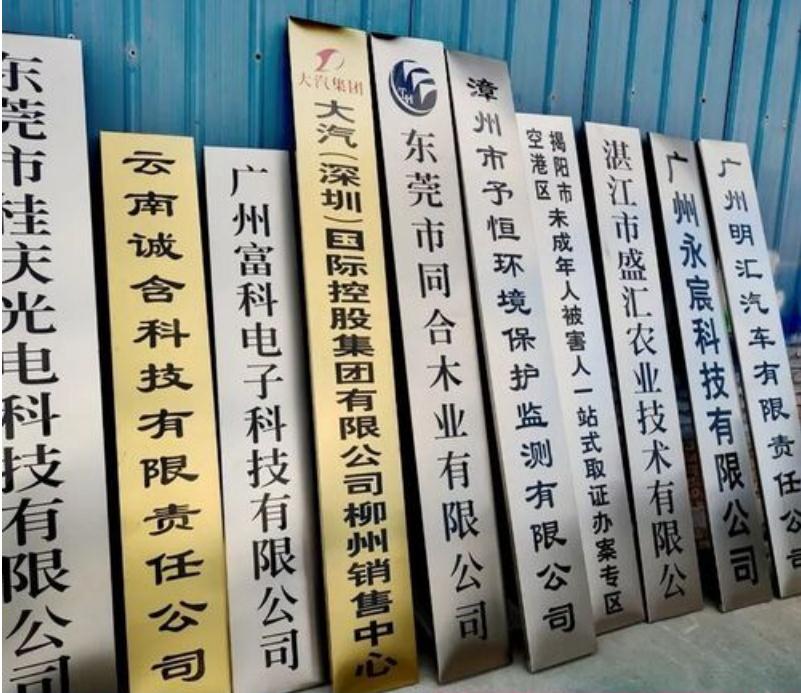 东莞市桂庆光电科技有限公司
云南诚含科技有限责任公司
广州富科电子科技有限公司
大汽集团
大汽(深圳)国际控股集团有限公司柳州销售中心
TH
东莞市同合木业有限公司
漳州市予恒环境保护监测有限公司
揭阳市
空港区
未成年人被害人一站式取证办案专区
湛江市盛汇农业技术有限公
广州永宸科技有限公司
广州明汇汽车有限责任公司